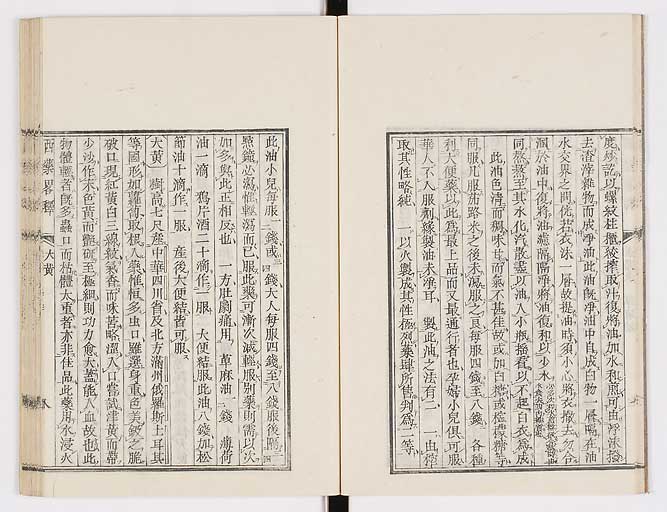 度殘認以螺紋柱搬絞搾取汁復將油加水和煎可由浮沫撥
去渣滓雜物而成淨油此油旣淨油中自成白物一層隔在油
水交界之間恍若衣沫一層故提油時須小心將衣撥去勿令
溷於油中復將油濾隔隔淨將油復和以少水
同熬熬至其水化汽散盡以油入小瓶搖看以不起白衣爲成
此油色淸而稠味甘而氣不甚佳故或如白糖或橙皮糖等
同服凡服茄路米之後未瀉服之良每服四錢至八錢 各種
利大便藥以此爲最上品而又最通行者也孕婦小兒俱可服
華人不入服劑緣製油未淨耳 製此油之法有二 一由榨
取其性略純 一以火製成其性 葯肆所售判爲一等
此油小兒每服二錢或四錢大人每服四錢至八錢服後
然雖必瀉惟輕瀉而已服此藥可漸次減輕服別藥則需以次
加多與此正相反也 一方肚痛通用 萆麻油一錢 薄荷
油一滴 鴉片酒二十滴作一服 大便結服此油八錢加松
節油十滴作一服 產後大便結者可服
大黃 樹高七尺產中華四川省及北方滿州俄羅斯土耳其
等國形如蘿蔔取根入藥惟恒多虫口雖選身重色美皺之脆
破口現紅黃白三線紋氣香而味苦略澀入口嘗試之黃而帶
少沙作末色黃而豔硏至極細則功力愈大蓋能入血故也此
物體輕者旣多蟲口而枯體太重者亦非佳品此藥用水浸火
西藥畧釋
大黃